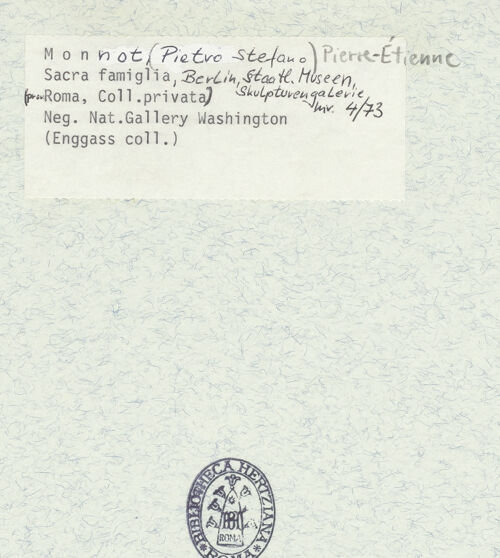 Monnot, (Pietro Stefano) Pierre-Étienne
Sacra famiglia, Berlin, Staatl. Museen,
Skulpturengalerie
Roma, Coll.privata) inv. 4/73
Neg. Nat.Gallery Washington
(Enggass coll.)
BIBLIOTHECA HERTZIANA
ROMA
ROMA